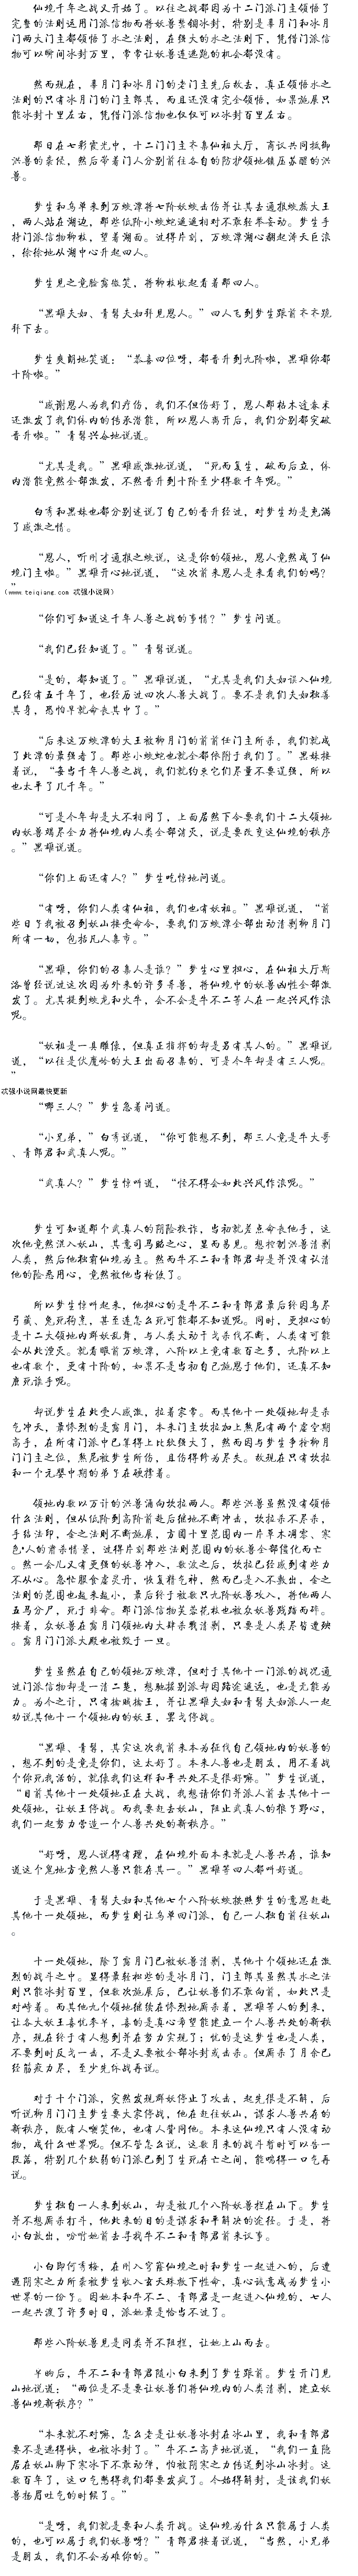 仙境千年之战又开始了。以往之战都因为十二门派门主领悟了
完整的法则运用门派信物而将妖兽焚锢冰封，特别是辜月门和冰月
门两大门主都领悟了水之法则，在强大的水之法则下，凭借门派信
物可以瞬间冰封万里，常常让妖兽连逃跑的机会都没有。
然而现在，辜月门和冰月门的老门主先后故去，真正领悟水之
法则的只有冰月门的门主郎其，而且还没有完全领悟，如果施展只
能冰封十里左右，凭借门派信物也仅仅可以冰封百里左右。
那日在七彩霞光中，十二门门主齐集仙祖大厅，商议共同抵御
洪兽的袭侵，然后带着门人分别前往各自的防护领地镇压苏醒的洪
兽。
梦生和乌单来到万蛟潭将七阶妖蛟击伤并让其去通报蛟蒸大王
，两人站在湖边，那些低阶小蛟蛇遥遥相对不敢轻举妄动。梦生手
持门派信物柳枝，望着湖面。过得片刻，万蛟潭湖心翻起涛天巨浪
，徐徐地从湖中心升起四人。
梦生见之竟脸露微笑，将柳枝收起看着那四人。
“黑雄夫妇、青髯夫妇拜见恩人。”四人飞到梦生跟前齐齐跪
拜下去。
梦生爽朗地笑道：“恭喜四位呀，都晋升到九阶啦，黑雄你都
十阶啦。”
“感谢恩人为我们疗伤，我们不但伤好了，恩人那枯木逢春术
还激发了我们体内的传承潜能，所以恩人离开后，我们分别都突破
晋升啦。”青髯兴奋地说道。
“尤其是我。”黑雄感激地说道，“死而复生，破而后立，体
内潜能竟然全部激发，不然晋升到十阶至少得数千年呢。”
白秀和黑妹也都分别述说了自己的晋升经过，对梦生均是充满
了感激之情。
“恩人，听刚才通报之蛟说，这是你的领地，恩人竟然成了仙
境门主啦。”黑雄开心地说道，“这次前来恩人是来看我们的吗？
”
（www.teiqiang.com 忒强小说网）
“你们可知道这千年人兽之战的事情？”梦生问道。
“我们已经知道了。”青髯说道。
“是的，都知道了。”黑雄说道，“尤其是我们夫妇误入仙境
已经有五千年了，也经历过四次人兽大战了。要不是我们夫妇独善
其身，恐怕早就命丧其中了。”
“后来这万蛟潭的大王被柳月门的前前任门主所杀，我们就成
了此潭的最强者了。那些小蛟蛇也就全部依附于我们了。”黑妹接
着说，“每当千年人兽之战，我们就约束它们尽量不要逞强，所以
也太平了几千年。”
“可是今年却是大不相同了，上面居然下令要我们十二大领地
内妖兽端尽全力将仙境内人类全部消灭，说是要改变这仙境的秩序
。”黑雄说道。
“你们上面还有人？”梦生吃惊地问道。
“有呀，你们人类有仙祖，我们也有妖祖。”黑雄说道，“前
些日子我被召到妖山接受命令，要我们万蛟潭全部出动清剿柳月门
所有一切，包括凡人集市。”
“黑雄，你们的召集人是谁？”梦生心里担心，在仙祖大厅斯
洛曾经说过这次因为外来的许多异兽，将仙境中的妖兽凶性全部激
发了。尤其提到蛟龙和火牛，会不会是牛不二等人在一起兴风作浪
呢。
“妖祖是一具雕像，但真正指挥的却是另有其人的。”黑雄说
道，“以往是伏魔岭的大王出面召集的，可是今年却是有三人呢。
”
忒强小说网最快更新
“哪三人？”梦生急着问道。
“小兄弟，”白秀说道，“你可能想不到，那三人竟是牛大哥
、青郎君和武真人呢。”
“武真人？”梦生惊叫道，“怪不得会如此兴风作浪呢。”
梦生可知道那个武真人的阴险狡诈，当初就差点命丧他手，这
次他竟然混入妖山，其意司马昭之心，显而易见。想控制洪兽清剿
人类，然后他独霸仙境为主。然而牛不二和青郎君却是并没有认清
他的险恶用心，竟然被他当枪使了。
所以梦生惊叫起来，他担心的是牛不二和青郎君最后轻因鸟尽
弓藏、兔死狗烹，甚至连怎么死可能都不知道呢。同时，更担心的
是十二大领地内群妖乱舞，与人类大动干戈杀伐不断，人类有可能
会从此湮灭。就看眼前万蛟潭，八阶以上竟有数百之多，九阶以上
也有数个，更有十阶的，如果不是当初自己施恩于他们，还真不知
鹿死谁手呢。
却说梦生在此受人感激，拉着家常。而其他十一处领地却是杀
气冲天，最惨烈的是霜月门，本来门主坎拉加上熬尼有两个虚空期
高手，在所有门派中已算得上比较强大了，然而因与梦生争抢柳月
门门主之位，熬尼被梦生所伤，且伤得修为尽失。故现在只有坎拉
和一个元婴中期的弟子在硬撑着。
领地内数以万计的兽兽涌向坎拉两人。那些洪兽虽然没有领悟
什么法则，但从低阶到高阶前赴后继地不断冲击，坎拉杀不尽杀，
手结法印，金之法则不断施展，方圆十里范围内一片草木凋零、寒
色·人的肃杀情景，过得片刻那些法则范围内的妖兽全部僵化而亡
。然一会儿又有更强的妖兽冲入，数波之后，坎拉已经感到有些力
不从心。急忙服食虚灵丹，恢复精气神，然而已是入不敷出，金之
法则的范围也越来越小，最后终于被数只九阶妖兽攻入，将他两人
五马分尸，死于非命。那门派信物芙蓉花枝也被众妖兽践踏而碎。
接着，众妖兽在霜月门领地内大肆杀戮清剿，只要是人类尽皆遭殃
。霜月门门派大殿也被毁于一旦。
梦生虽然在自己的领地万蛟潭，但对于其他十一门派的战况通
过门派信物却是一清二楚，想驰援别派却因路途遥远，也是无能为
力。为今之计，只有擒贼擒王，并让黑雄夫妇和青髯夫妇派人一起
劝说其他十一个领地内的妖王，罢戈停战。
“黑雄、青髯，其实这次我前来本为征伐自己领地内的妖兽的
，想不到的是竟是你们，这太好了。本来人兽也是朋友，用不着战
个你死我活的，就像我们这样和平共处不是很好嘛。”梦生说道，
“目前其他十一处领地正在大战，我想请你们并派人前去其他十一
处领地，让妖王停战。而我要赶去妖山，阻止武真人的狼子野心，
我们一起努力营造一个人兽共处的新秩序。”
“好呀，恩人说得有理，在仙境外面本来就是人兽共存，谁知
道这个鬼地方竟然人兽只能存在其一。”黑雄等四人都叫好道。
于是黑雄、青髯夫妇和其他七个八阶妖蛟按照梦生的意思赴赴
其他十一处领地，而梦生则让乌单回门派，自己一人独自前往妖山
。
十一处领地，除了霜月门已被妖兽清剿，其他十个领地还在激
烈的战斗之中。显得最轻松些的是冰月门，门主郎其虽然其水之法
则只能冰封百里，但数次施展后，已让妖兽们不敢向前，如此只是
对峙着。而其他九个领地继续在惨烈地厮杀着，黑雄等人的到来，
让各大妖王喜忧参半，喜的是真心希望能建立一个人兽共处的新秩
序，现在终于有人想到并在努力实现了；忧的是这梦生也是人类，
不要到时反戈一击，不是又要被全部冰封或击杀。但厮杀了月余已
经筋疲力尽，至少先休战再说。
对于十个门派，突然发现群妖停止了攻击，起先很是不解，后
听说柳月门门主梦生要大家停战，他在赶往妖山，谋求人兽共存的
新秩序，既有人嘲笑他，也有人赞同他。本来这仙境只有人没有动
物，成什么世界呢。但不管怎么说，这数月来的战斗暂时可以告一
段落，特别几个较弱的门派已到了生死存亡之间，能喘得一口气再
说。
梦生独自一人来到妖山，却是被几个八阶妖兽拦在山下。梦生
并不想厮杀打斗，他此来的目的是谋求和平解决的途径。于是，将
小白放出，吩咐她前去寻找牛不二和青郎君前来议事。
小白即何秀梅，在刚入穹窿仙境之时和梦生一起进入的，后遭
遇阴寒之力所袭被梦生收入玄天珠救下性命，真心诚意成为梦生小
世界的一份子。因她本和牛不二、青郎君是一起进入仙境的，七人
一起共渡了许多时日，派她最是恰当不过了。
那些八阶妖兽见是同类并不阻拦，让她上山而去。
半晌后，牛不二和青郎君随小白来到了梦生跟前。梦生开门见
山地说道：“两位是不是要让妖兽们将仙境内的人类清剿，建立妖
兽仙境新秩序？”
“本来就不对嘛，怎么老是让妖兽冰封在冰山里，我和青郎君
要不是逃得快，也被冰封了。”牛不二高声地说道，“我们一直隐
居在妖山脚下寒冰下不敢动弹，怕被阴寒之力传送到冰山冰封。这
数百年了，这口气憋得我们都要发疯了。今始得解封，是该我们妖
兽扬眉吐气的时候了。”
“是呀，我们就是要和人类开战。这仙境为什么只能属于人类
的，也可以属于我们妖兽呀？”青郎君接着说道，“当然，小兄弟
是朋友，我们不会为难你的。”